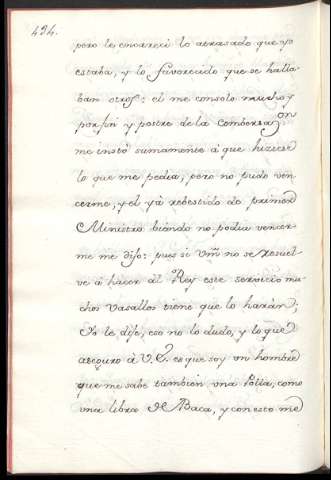 494.
pero le encarecí lo atrasado que yo
estaba, y lo favorecido que se halla
ban otros: el me consolo mucho, y
por fin y postre de la combersazon
me instò sumamente á que hiziese
lo que me pedia; pero no pudo ven
cerme, y el yá rebestido de primer
Ministro biendo no podia vencer
me me dijo: pues si Vm no se resuel
ve á hacer al Rey este servicio mu
chos vasallos tiene que lo harán;
Yo le dije, eso no lo dudo, y lo que
aseguro à V.E. es que soy un hombre
que me sabe tambien una Polla, como
una libra de Baca, y con esto me